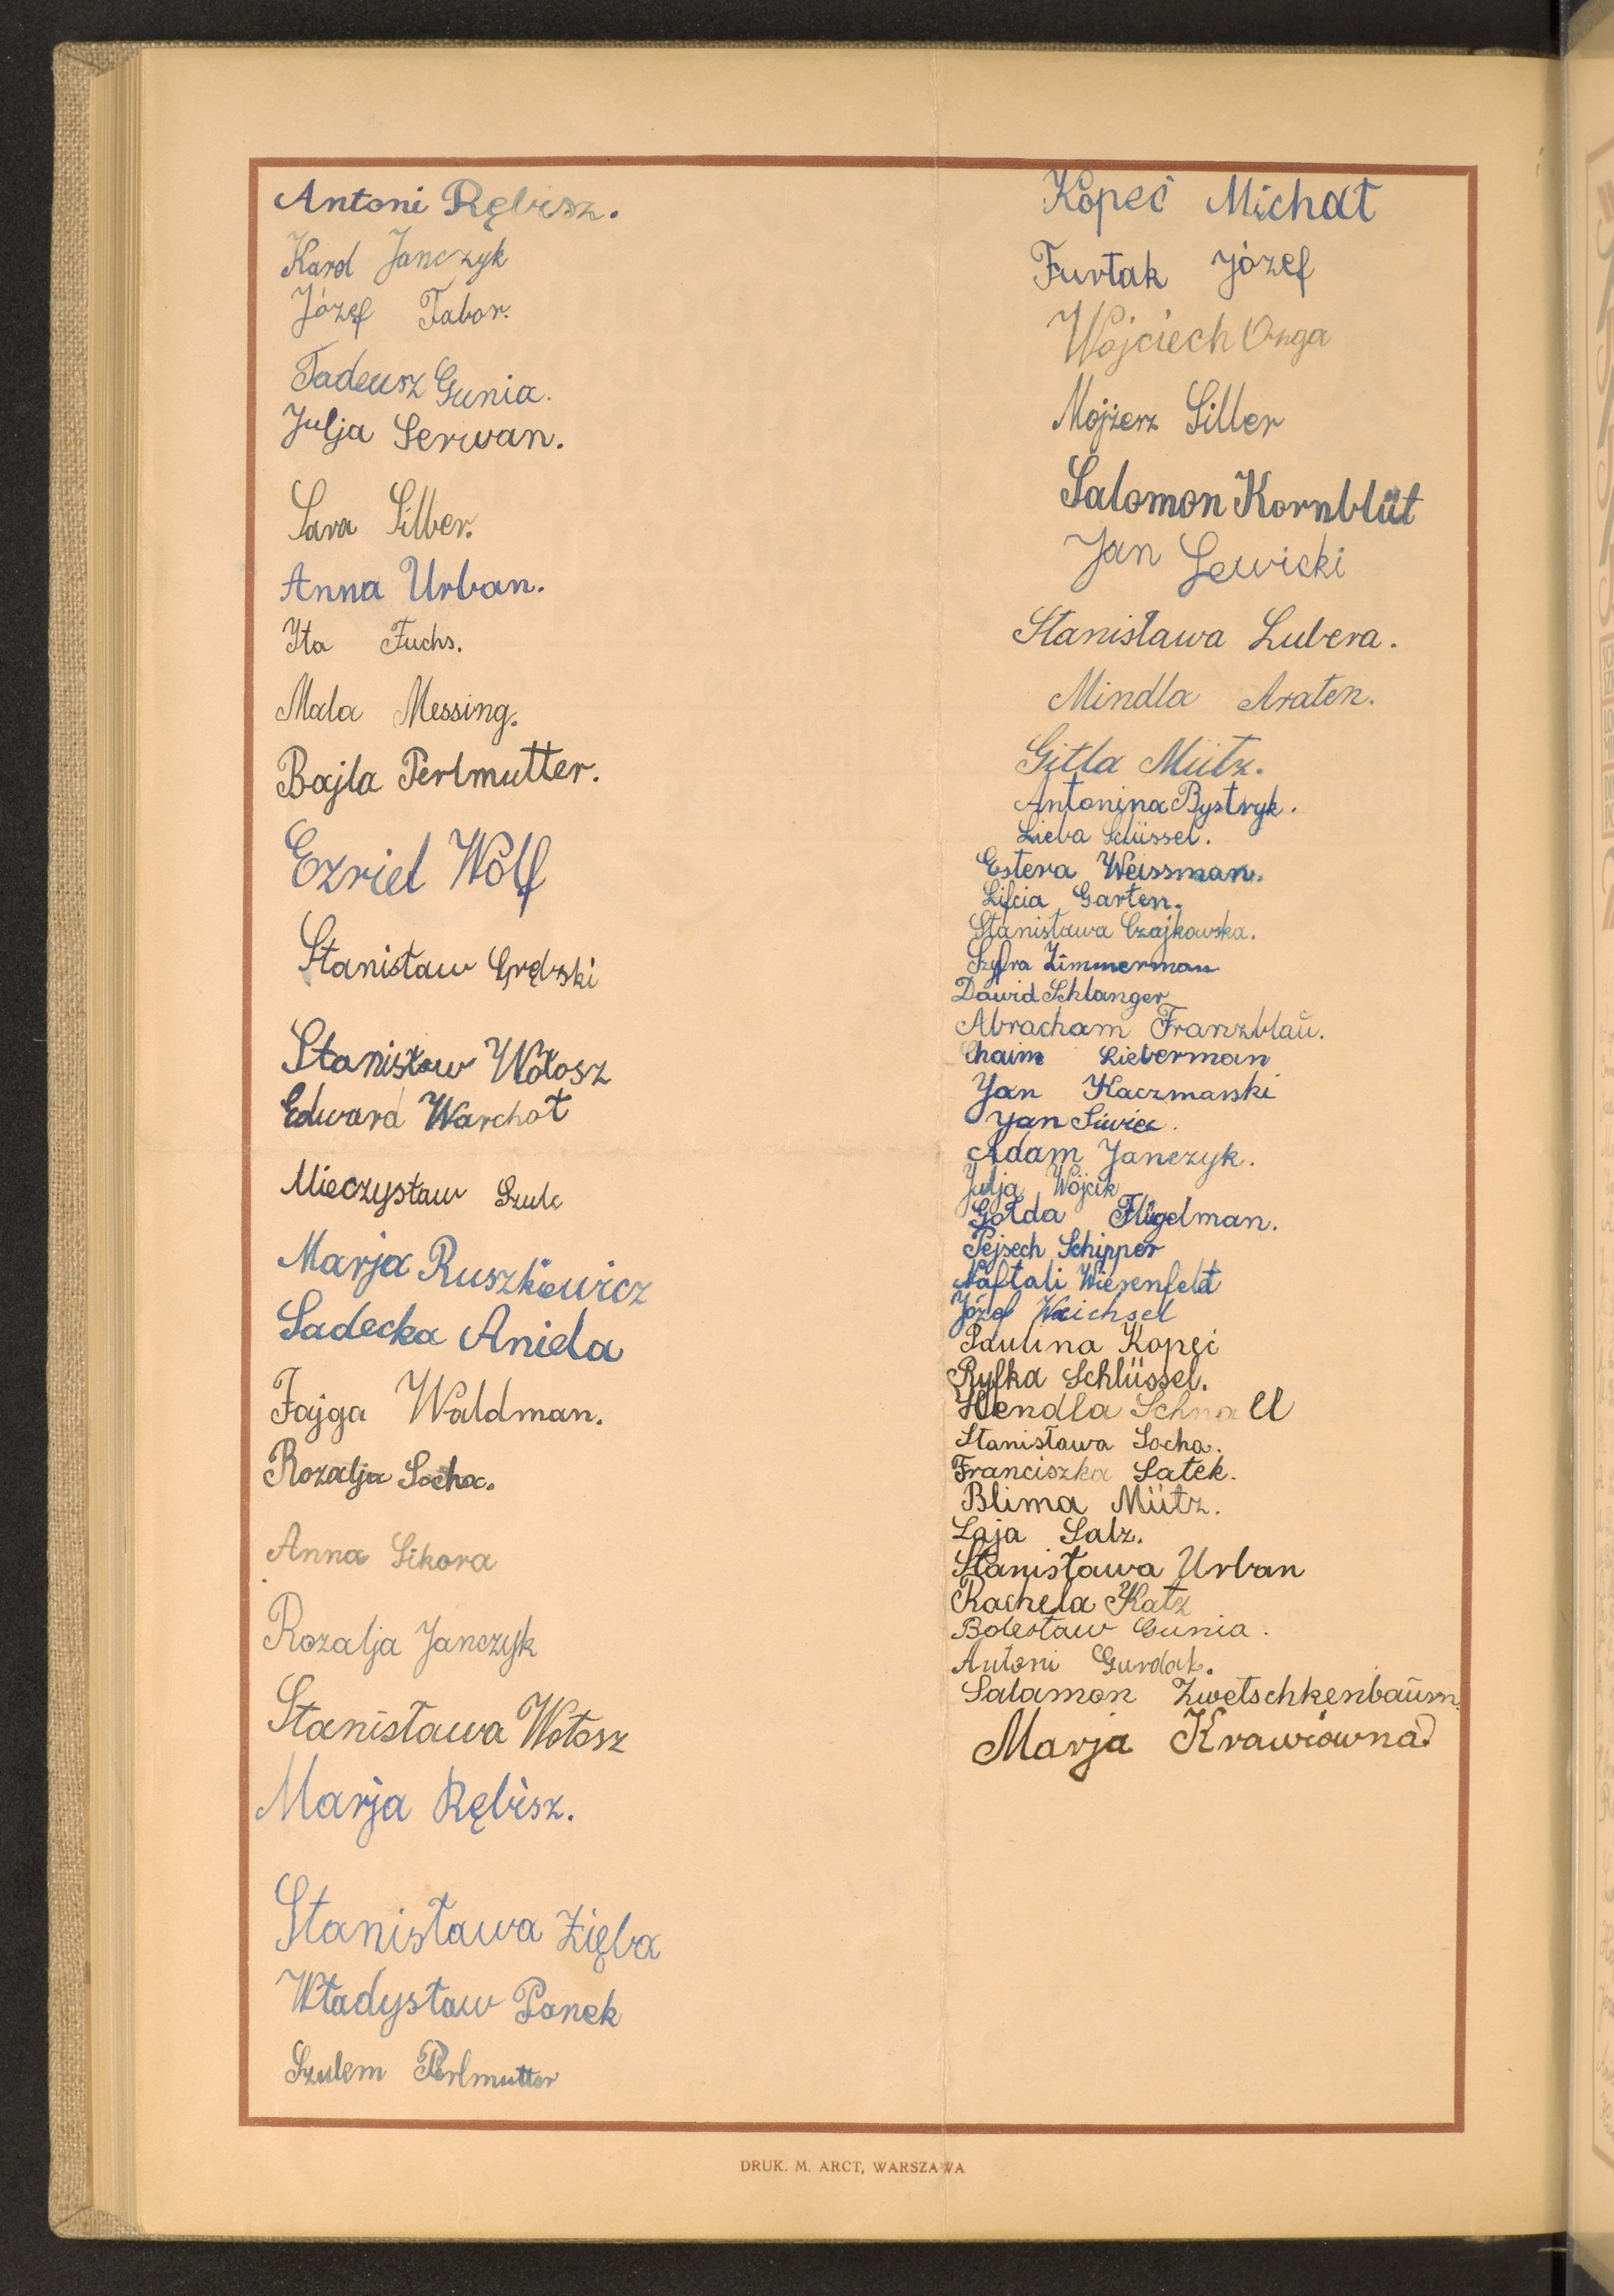 Antoni Rębisz.
Karol Janczyk
Józef Tabor.
Tadeusz Gunia.
Julja Serwan.
Sara Silber.
Anna Urban.
Ita Fuchs.
Mala Messing.
Bajla Perlmutter.
Ezriel Wolf
Stanisław Grębski
Stanisław Wołosz
Edward Warchoł
Mieczysław Szulc
Marja Ruszkiewicz
Sadecka Aniela
Fajga Waldman.
Rozalja Socha.
Anna Sikora
Rozalja Janczyk
Stanisława Wołosz
Marja Rębisz.
Stanisława Zięba
Władysław Panek
Szulem Perlmutter
Kopeć Michał
Furtak Józef
Wojciech Onga
Mojżerz Siller
Salomon Kornblüt
Jan Lewicki
Stanisława Lubera.
Mindla Araten.
Gitla Mütz.
Antonina Bystryk.
Lieba Schüssel.
Estera Weissman.
Lifcia Garten.
Stanisława Czajkowska.
Szyfra Zimmerman
Dawid Schlanger
Abracham Franzblaŭ.
Chaim Lieberman
Jan Kaczmarski
Jan Siwiec.
Adam Janczyk.
Julja Wójcik
Gołda Flügelman.
Pejsech Schipper
Naftali Wiesenfeld
Józef Weichsel
Paulina Kopeć
Ryfka Schlüssel.
Hendla Schnall
Stanisława Socha.
Franciszka Satek.
Blima Mütz.
Laja Salz.
Stanisława Urban
Rachela Katz
Bolesław Gunia.
Antoni Gurdak.
Salamon Zwetschkenbaŭm.
Marja Krawcówna
DRUK. M. ARCT, WARSZAWA